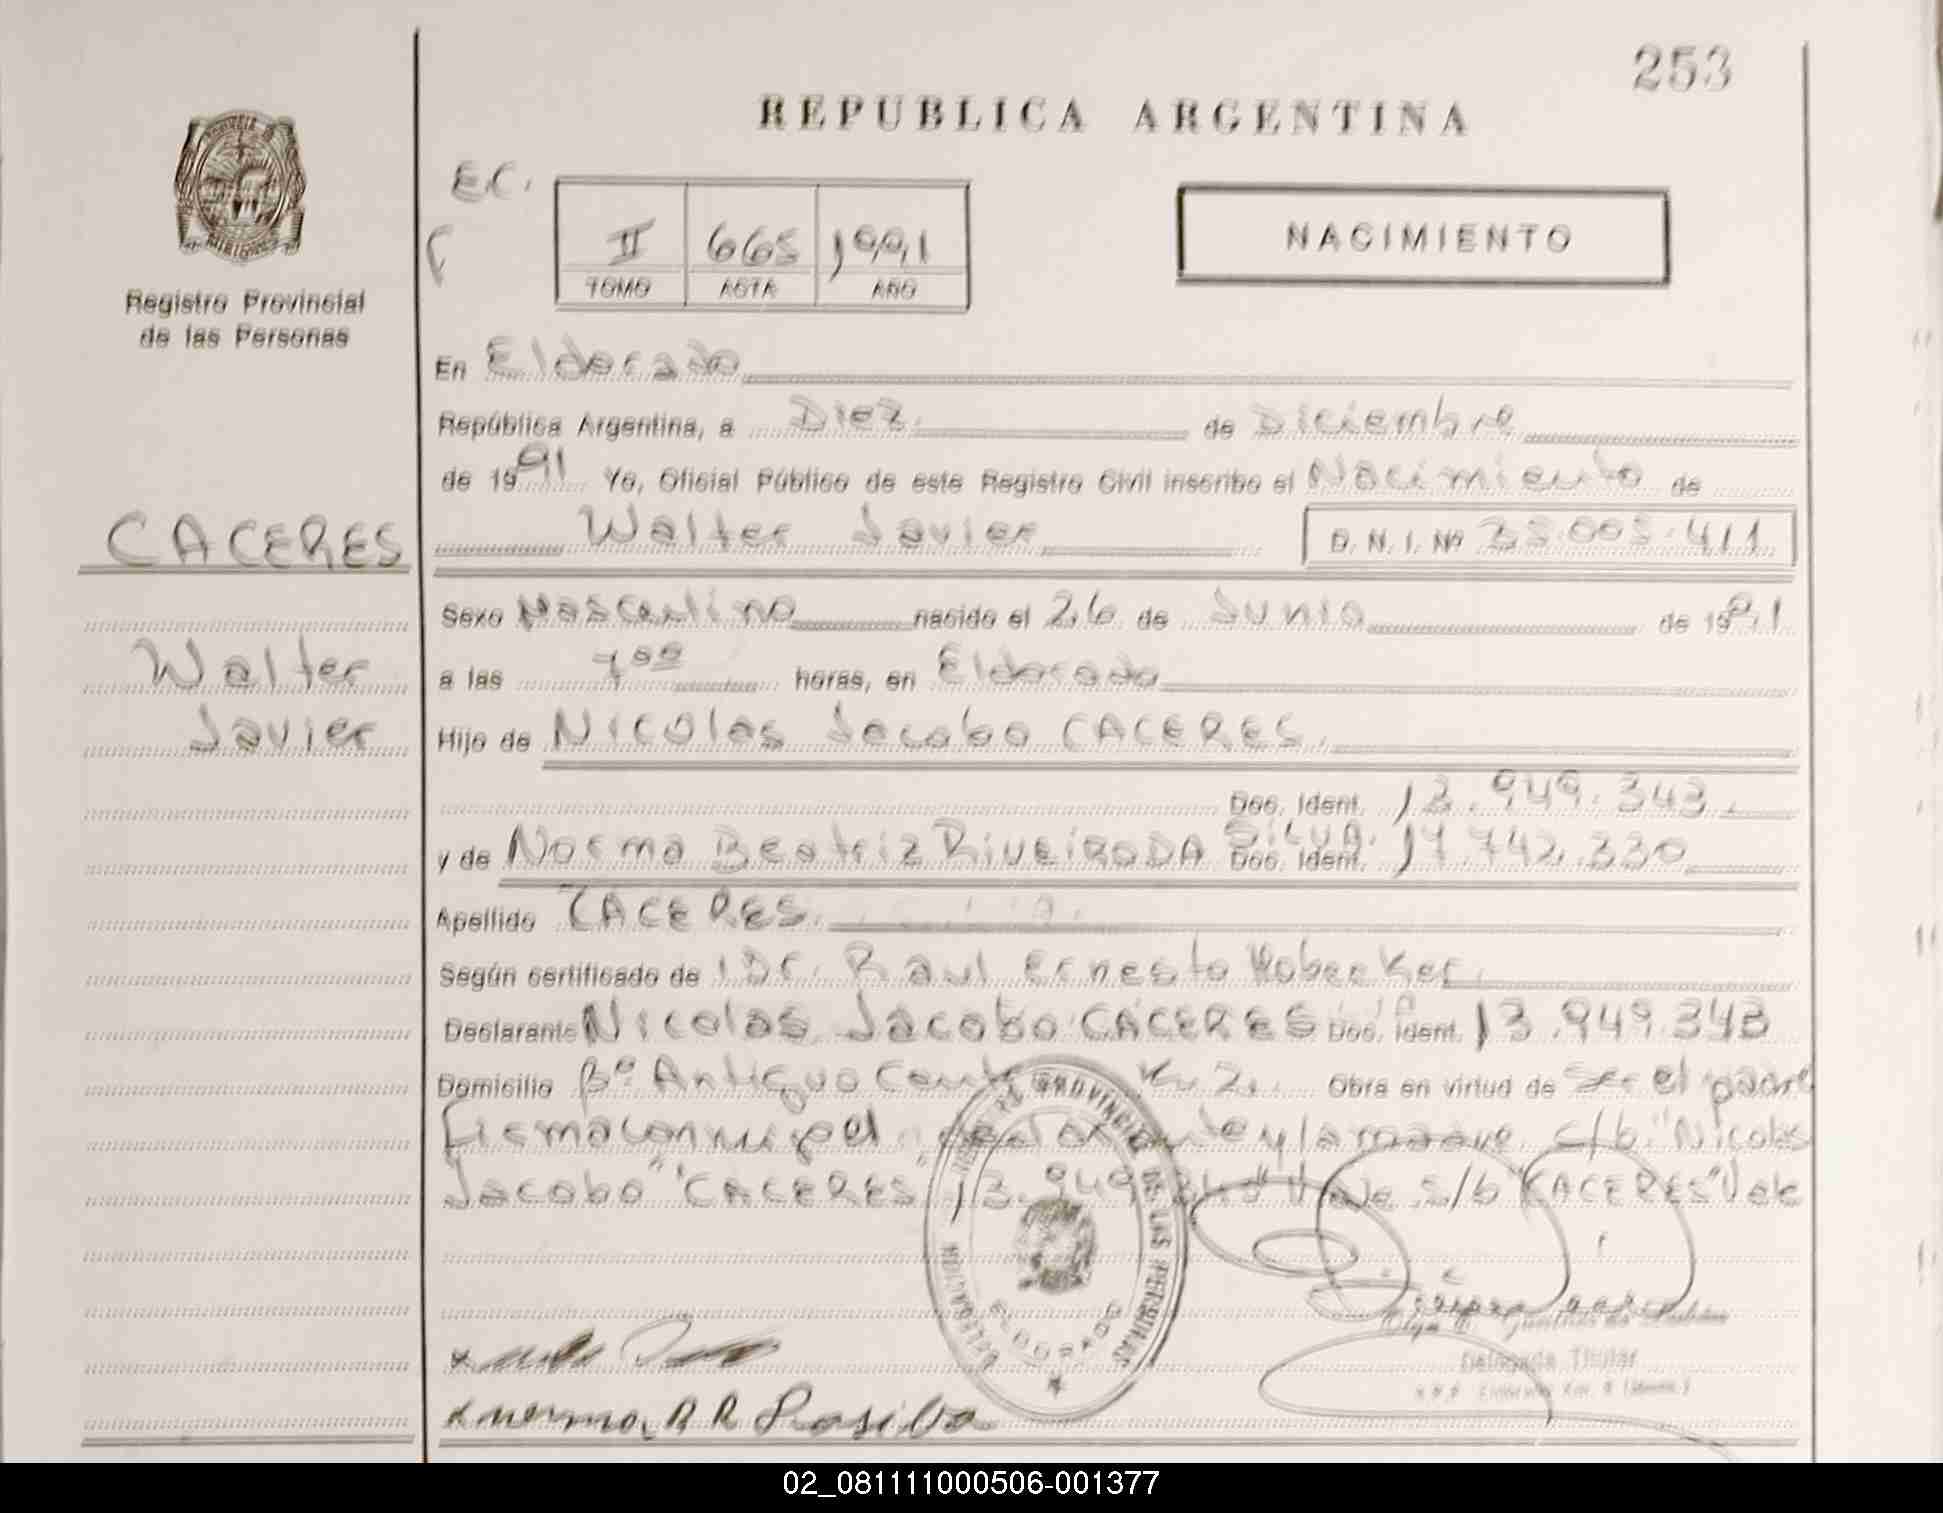 253
REPUBLICA ARGENTINA
E.C.
NACIMIENTO
II 665 1991
TOMO ACTA AÑO
Registro Provincial
de las Personas
En Eldorado
República Argentina, a Diez de Diciembre
de 1991 Yo, Oficial Público de este Registro Civil inscribo el Nacimiento de
CACERES
Walter Javier D.N.I. Nº 35.005.411
Sexo Masculino nacido el 26 de Junio de 1991
Walter
a las 7 00 horas, en Eldorado
Javier
Hijo de Nicolas Jacobo CACERES.
Doc. Ident. 13.949.343.
y de Norma Beatriz RIVEIRO DA SILVA. Doc. Ident. 17.742.330
Apellido CACERES.
Según certificado de Dr. Raul Ernesto
Declarante Nicolas Jacobo CACERES Doc. Ident. 13.949.343
Domicilio Bº Antiguo Km 2. Obra en virtud de ser el padre
Firma el declarante y la madre. s/b: "Nicolas
Jacobo" "CACERES" 13.949.343" Vale. s/b "CACERES" Vale
REGISTRO PROVINCIAL DE LAS PERSONAS
DELEGACION
ELDORADO
Delegada Titular
02_081111000506-001377